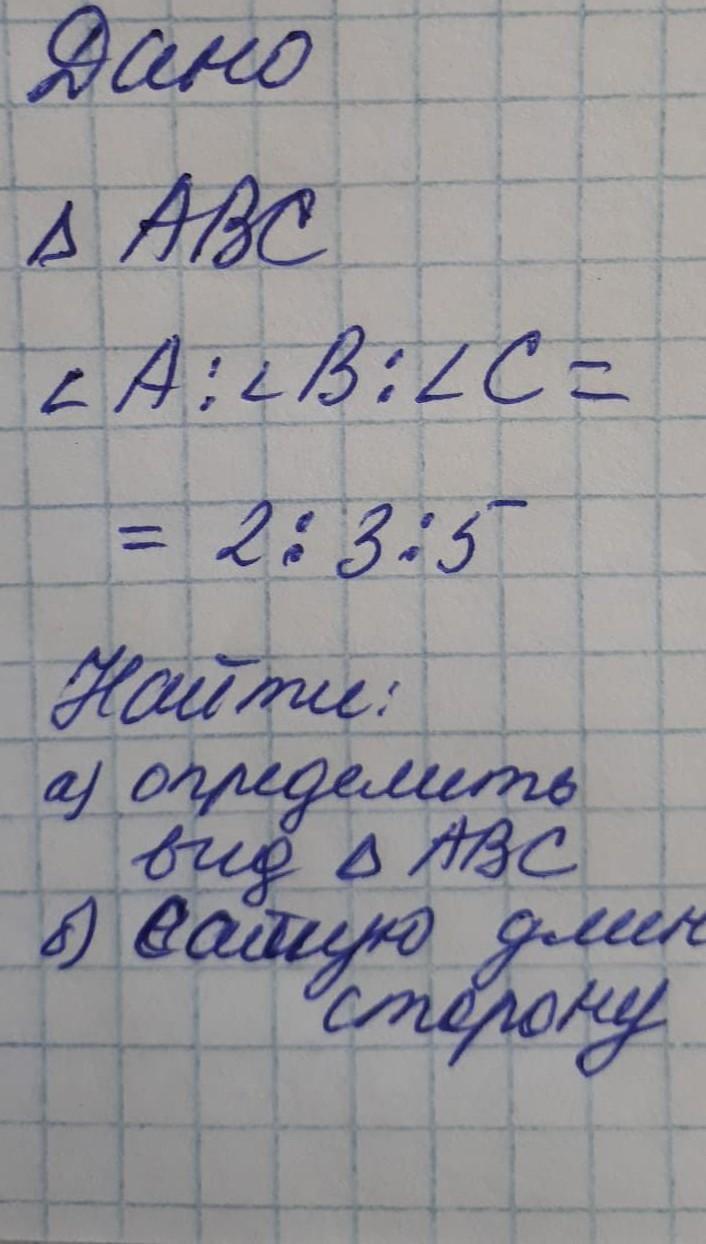 Дано
Δ ABC
∠A:∠B:∠C=
= 2:3:5
Найти:
а) определить
вид Δ ABC
б) Самую длин
сторону